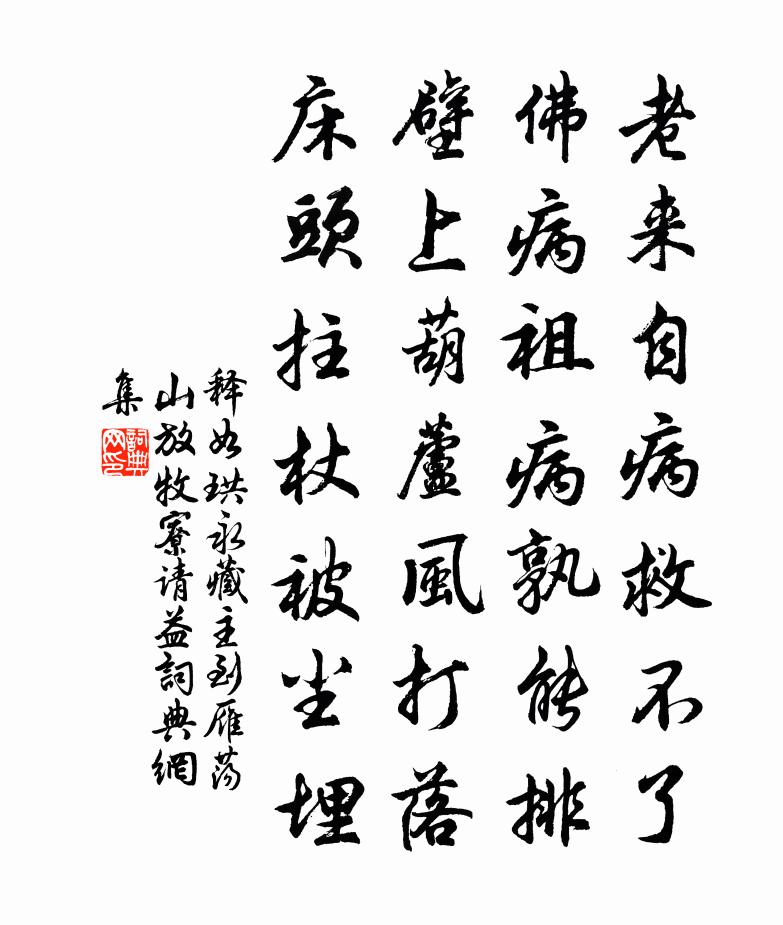 老来自病救不了
佛病祖病孰能排
壁上葫蘆風打落
床頭拄杖被尘埋
释如珙永藏主到雁荡
山放牧寮请益詞典網
集
詞典
网印